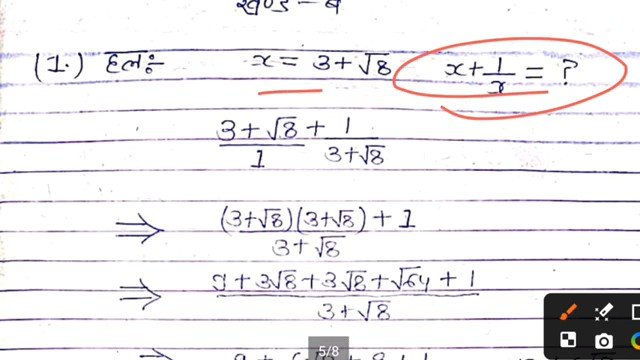 खण्ड - ब
(1.) हलः- x = 3 + √8 x + 1/x = ?
(3 + √8)/1 + 1/(3 + √8)
⇒ ((3+√8)(3+√8) + 1)/(3 + √8)
⇒ (9 + 3√8 + 3√8 + √64 + 1)/(3 + √8)
5/8